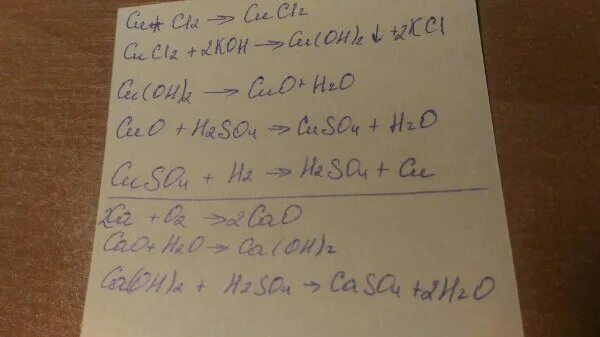 Cu + Cl2 → CuCl2
CuCl2 + 2KOH → Cu(OH)2 ↓ + 2KCl
Cu(OH)2 → CuO + H2O
CuO + H2SO4 → CuSO4 + H2O
CuSO4 + H2 → H2SO4 + Cu
2Ca + O2 → 2CaO
CaO + H2O → Ca(OH)2
Ca(OH)2 + H2SO4 → CaSO4 + 2H2O